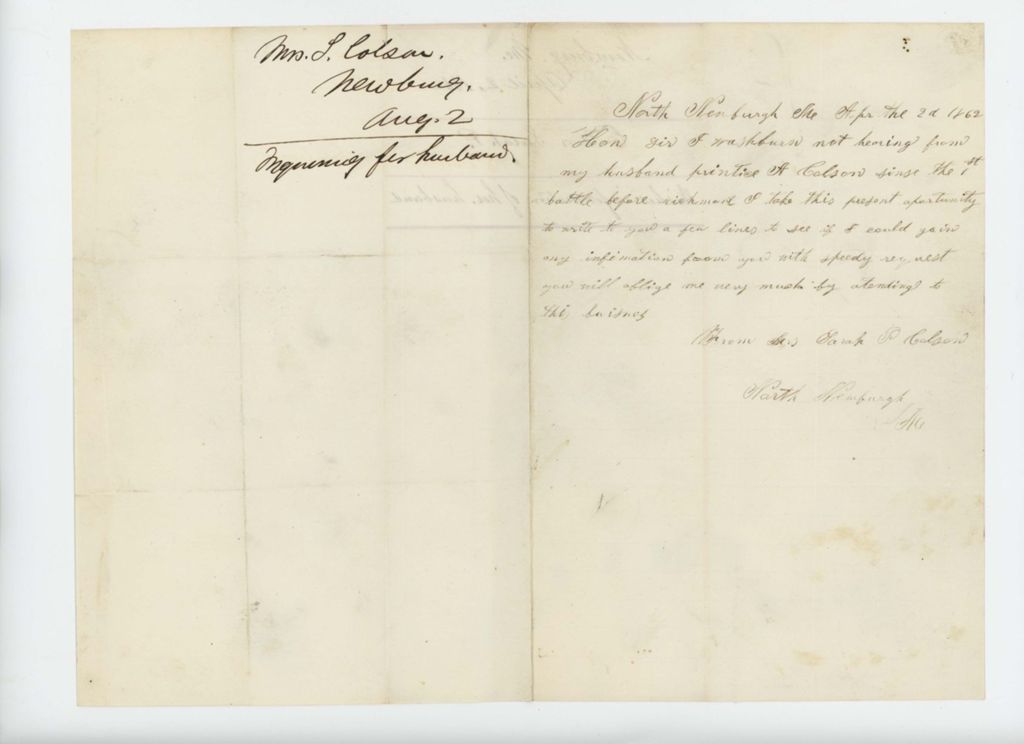 Mrs. S. Colson.
Newburg,
Aug. 2
Inquiring for husband.
North Newburgh Me Apr the 2d 1862
Hon sir I washburn not hearing from
my husband printice A Colson sinse the 1st
battle before richmond I take this present oportunity
to write to you a few lines to see if I could gain
any infimation from you with speedy request
you will oblige me very much by atending to
this buisnes
From Mrs Sarah P Colson
North Newburgh
Me